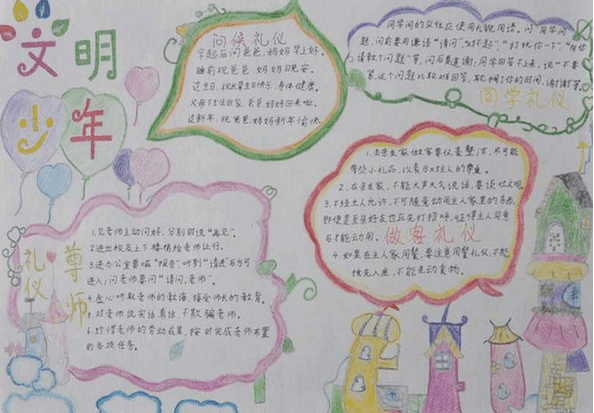 文明
少年
问候礼仪
早起后问爸爸、妈妈早上好。
睡前祝爸爸、妈妈晚安。
过生日,说生日快乐,身体健康。
父母下班回家,爸爸、妈妈回来啦。
过新年,祝爸爸、妈妈新年愉快。
同学间的交往应使用礼貌用语。问同学问
题,问前要用谦语“请问”、“对不起”、“打扰你一下”、“
请教个问题”等。问后要道谢。同学回答不上来,说“不要
紧,这个问题比较难回答,耽搁了你的时间,谢谢”等。
同学礼仪
1.去亲友家做客要仪表整洁,尽可能
带些小礼品,以表示对主人的尊重。
2.在亲友家,不能大声大气说话,要谈吐文明。
3.不经主人允许,不可随意动用主人家里的东西,
即使是至亲好友也应先打招呼,征得主人同意
后才能动用。
做客礼仪
4.如果在主人家用餐,要注意用餐礼仪,不能
抢先入座,不能先动食物。
尊师
礼仪
1.见老师主动问好,分别时说“再见”。
2.进出校及上下楼梯给老师让行。
3.进办公室要喊“报告”,听到“请进”后方可
进入;问老师要问“请问,老师”。
4.虚心听取老师的教诲,接受师长的教育。
5.对老师说实话真话,不欺骗老师。
6.珍惜老师的劳动成果,按时完成老师布置
的各项任务。